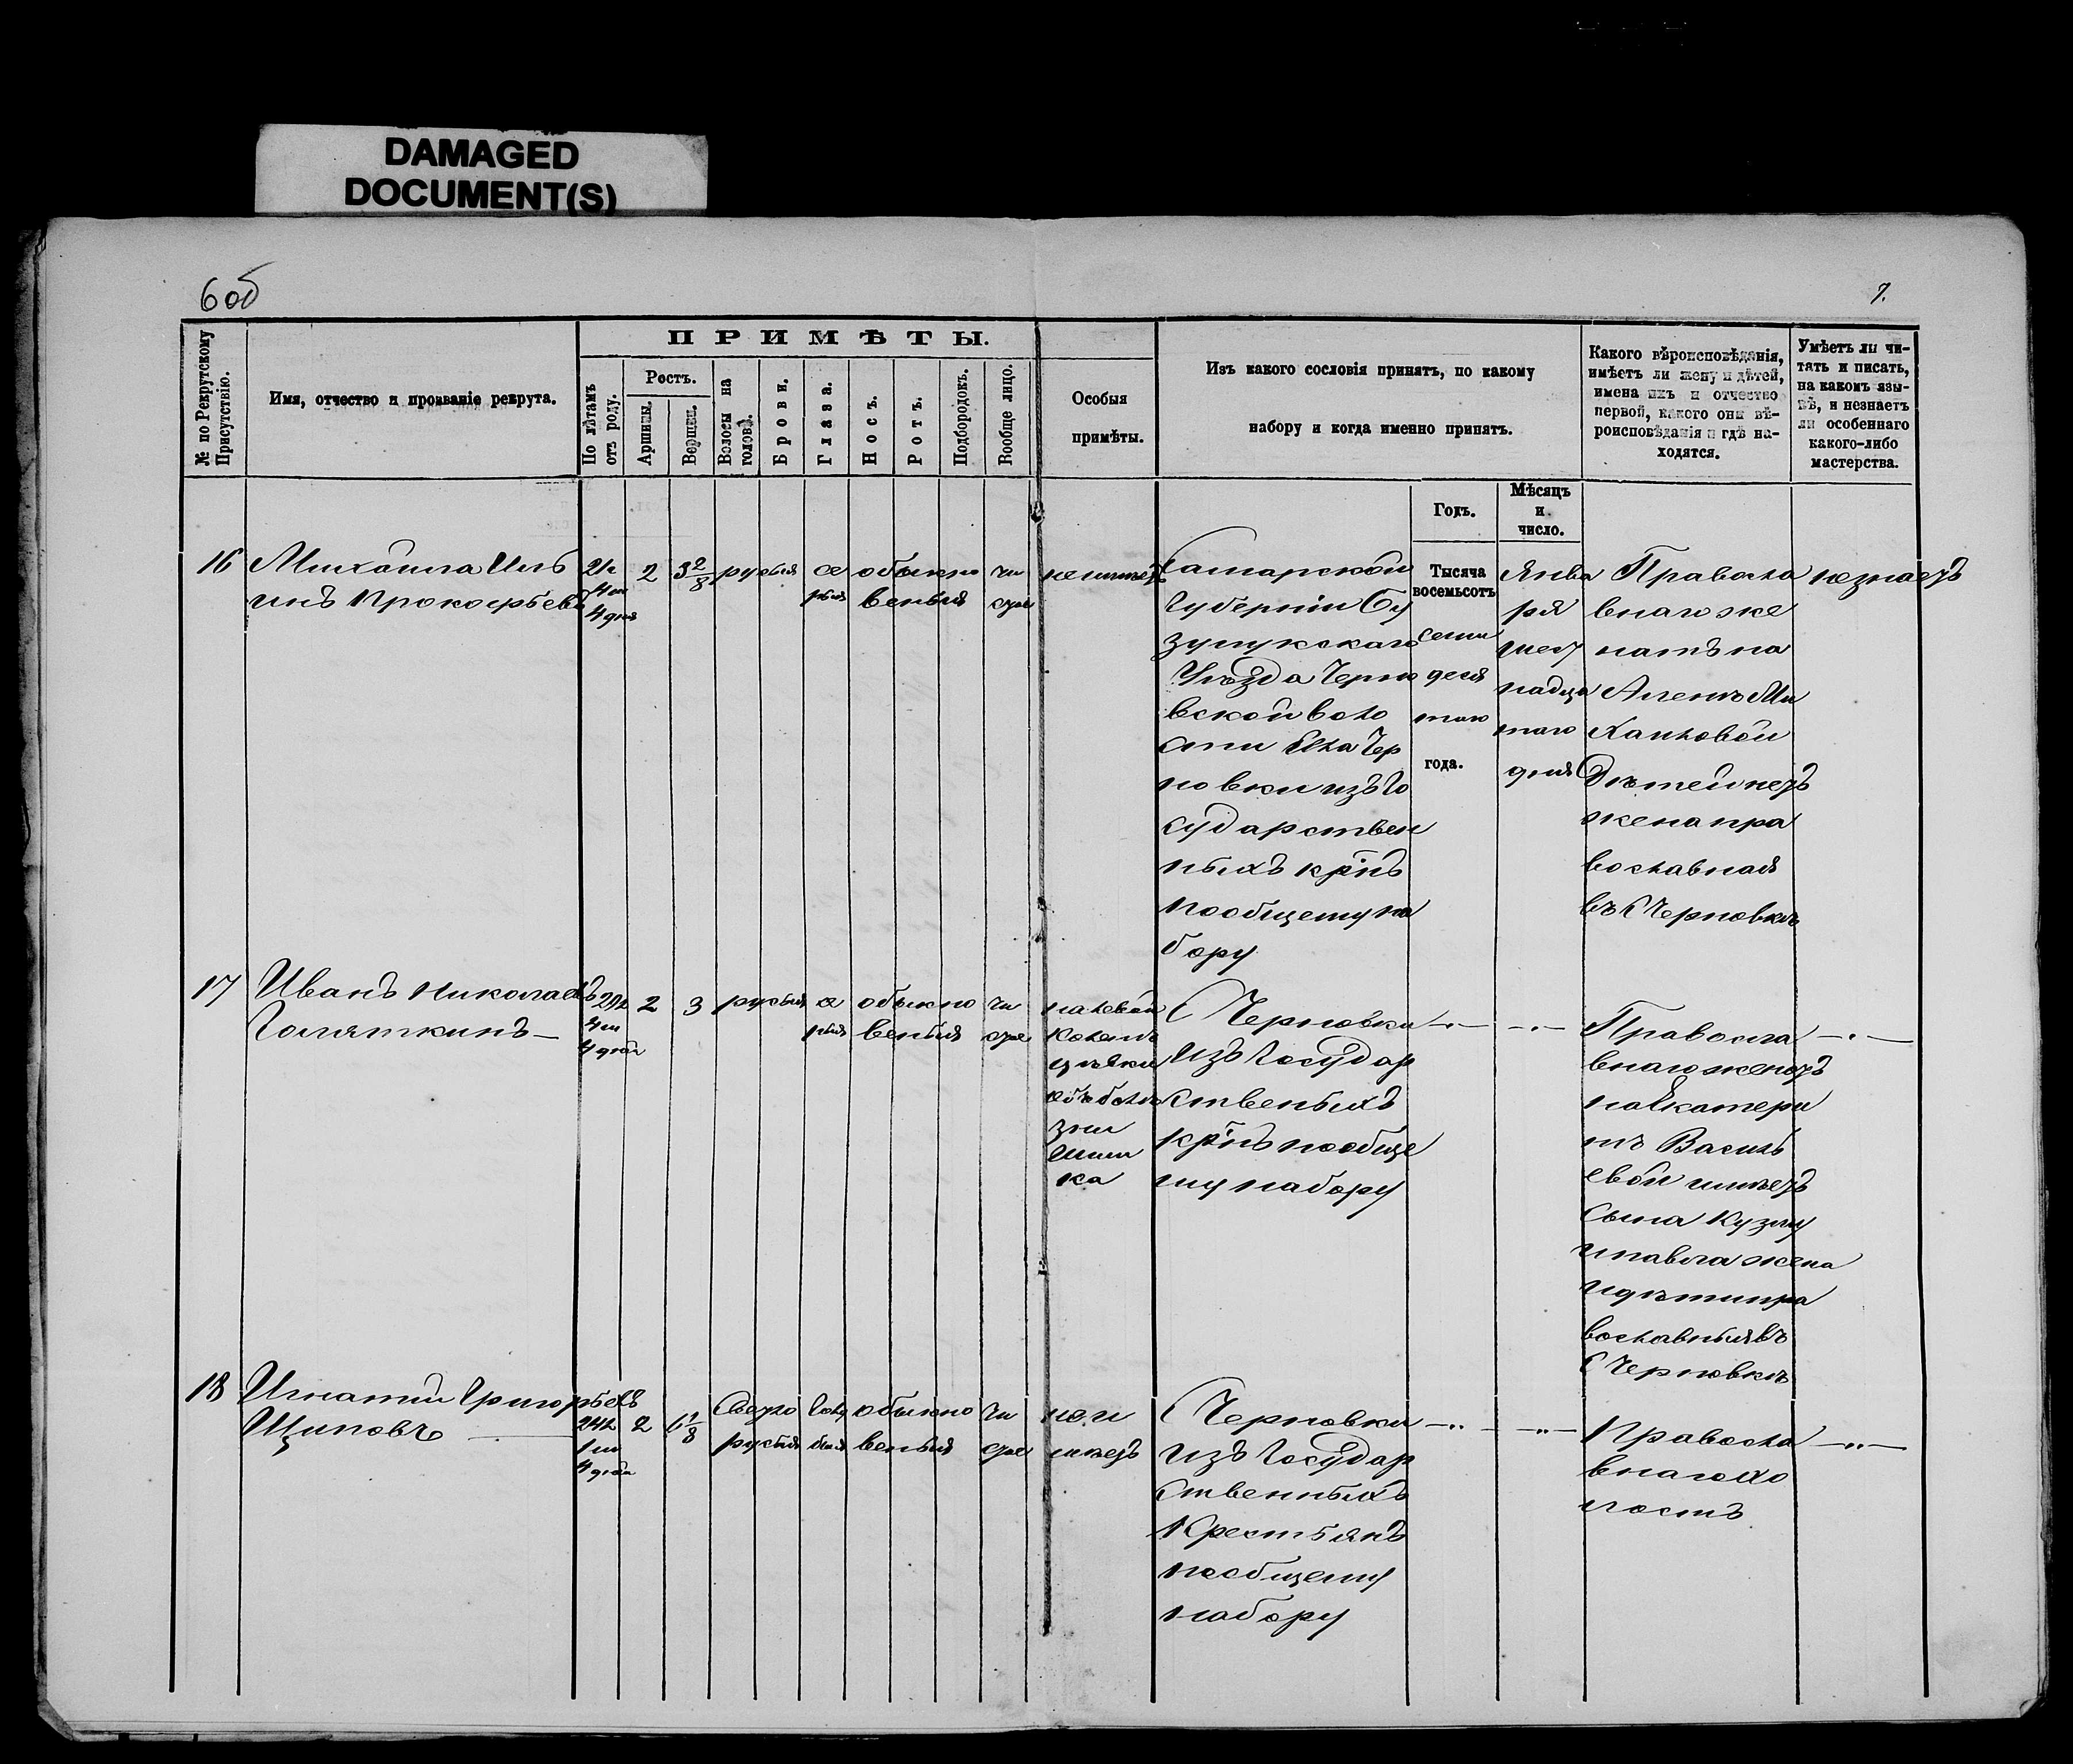 DAMAGED
DOCUMENT(S)
6об
7.
№ по Рекрутскому Присутствію.
Имя, отчество и прозваніе рекрута.
ПРИМѢТЫ.
По лѣтамъ отъ роду.
Ростъ.
Аршины.
Вершки.
Волосы на головѣ.
Брови.
Глаза.
Носъ.
Ротъ.
Подбородокъ.
Вообще лицо.
Особыя
примѣты.
Изъ какого сословія принятъ, по какому
набору и когда именно принятъ.
Годъ.
Мѣсяцъ
и
число.
Какого вѣроисповѣданія,
имѣетъ ли жену и дѣтей,
имена ихъ и отчество
первой, какого они вѣ-
роисповѣданія и гдѣ на-
ходятся.
Умѣетъ ли чи-
тать и писать,
на какомъ язы-
кѣ, и незнаетъ
ли особеннаго
какого-либо
мастерства.
16
Михаила Иль
инъ Прокофьевъ
21г
4м
4дня
2
3 2/8
русыя
се
рыя
обыкно
веныя
чи
стое
неимѣетъ
Самарской
Губерніи Бу
зулукскаго
Уѣзда Черно
вской воло
сти Села Чер
новки изъ Го
сударствен
ныхъ крнъ
пообщему на
бору
Тысяча
восемьсотъ
семи
деся
таго
года.
Янва
ря
шест
надца
таго
дня
Правосла
внаго же
натъ на
Аленѣ Ми
хайловой
Дѣтей нетъ
жена пра
вославная
въ С Черновкѣ
незнаетъ
17
Иванъ Николаевъ
Голяткинъ —
2
3
русыя
се
рыя
обыкно
веныя
чи
стое
4м
4дня
налевой
коленѣ
шишка
С Черновки
изъ Государ
ственыхъ
крнъ пообще
му набору
—"—
—"—
Правосла
внаго женатъ
на Екатери
нѣ Василь
евой имѣетъ
сына Кузму
и павла жена
и дѣти пра
вославныя въ
С Черновкѣ
—"—
18
Игнатий Григорьевъ
Щиповъ —
24л
1м
4дня
2
6 1/8
Светло
русыя
Голу
быя
обыкно
веныя
чи
стое
неи
мѣетъ
С Черновки
изъ Государ
ственныхъ
Крестьянъ
пообщему
набору
—"—
—"—
Правосла
внаго хо
лостъ
—"—